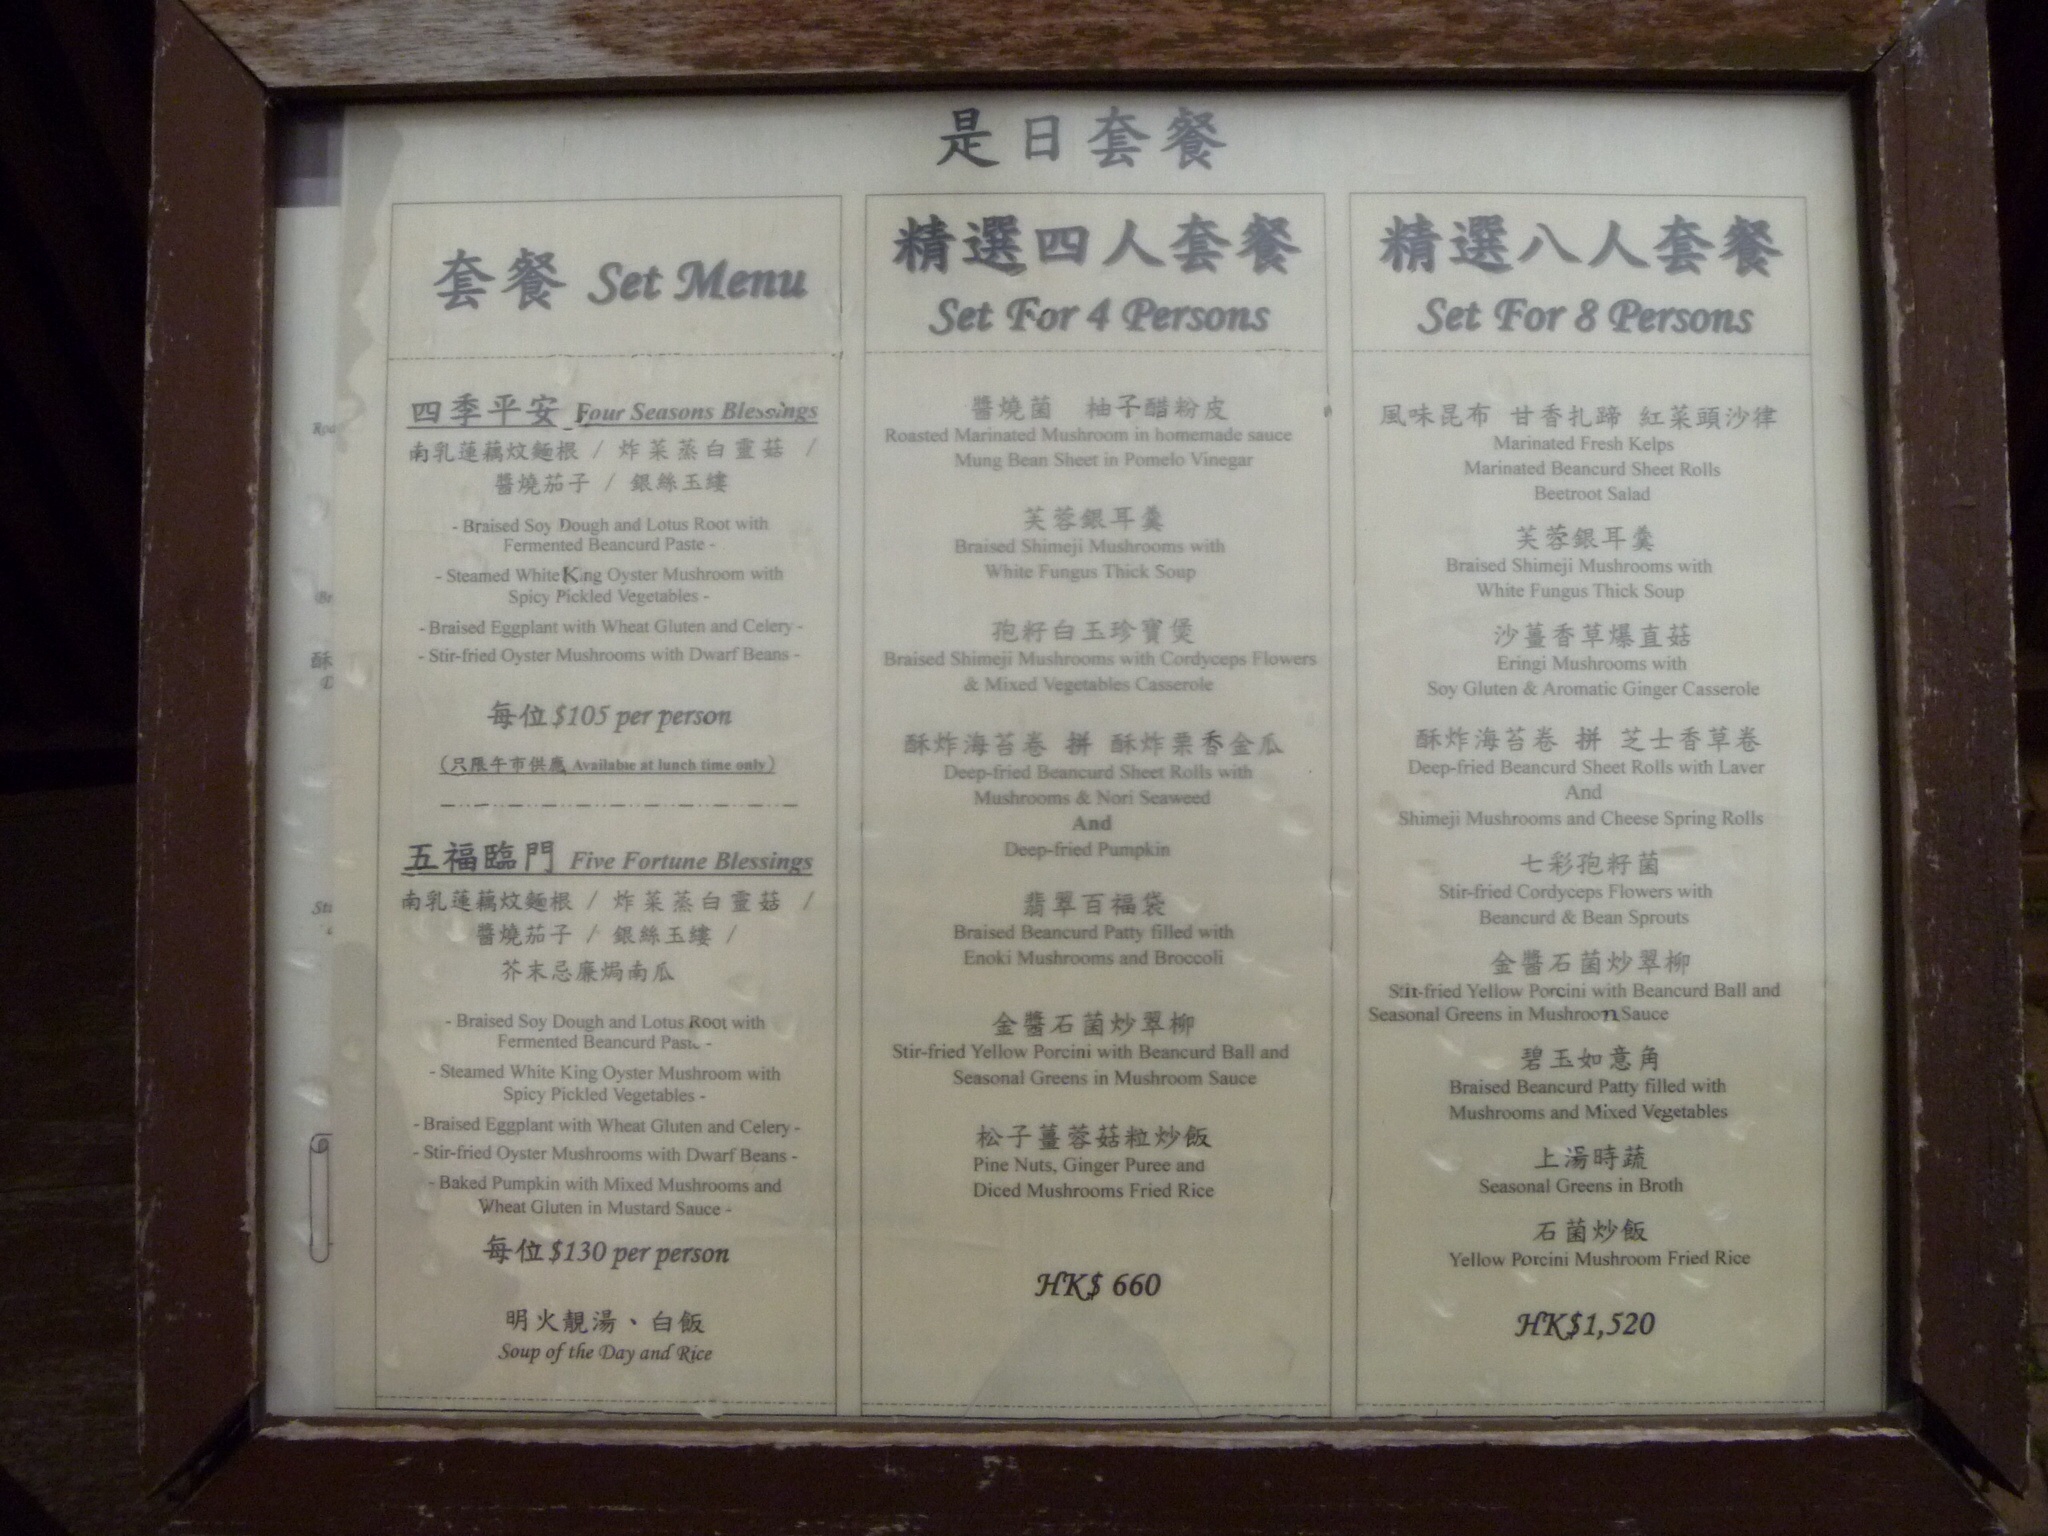 是日套餐
套餐 Set Menu
四季平安 Four Seasons Blessings
南乳蓮藕炆麵根 / 炸菜蒸白靈菇 /
醬燒茄子 / 銀絲玉縷
- Braised Soy Dough and Lotus Root with
Fermented Beancurd Paste -
- Steamed White King Oyster Mushroom with
Spicy Pickled Vegetables -
- Braised Eggplant with Wheat Gluten and Celery -
- Stir-fried Oyster Mushrooms with Dwarf Beans -
每位 $105 per person
(只限午市供應 Available at lunch time only)
五福臨門 Five Fortune Blessings
南乳蓮藕炆麵根 / 炸菜蒸白靈菇 /
醬燒茄子 / 銀絲玉縷 /
芥末忌廉焗南瓜
- Braised Soy Dough and Lotus Root with
Fermented Beancurd Paste -
- Steamed White King Oyster Mushroom with
Spicy Pickled Vegetables -
- Braised Eggplant with Wheat Gluten and Celery -
- Stir-fried Oyster Mushrooms with Dwarf Beans -
- Baked Pumpkin with Mixed Mushrooms and
Wheat Gluten in Mustard Sauce -
每位 $130 per person
明火靚湯、白飯
Soup of the Day and Rice
精選四人套餐
Set For 4 Persons
醬燒菌 柚子醋粉皮
Roasted Marinated Mushroom in homemade sauce
Mung Bean Sheet in Pomelo Vinegar
芙蓉銀耳羹
Braised Shimeji Mushrooms with
White Fungus Thick Soup
孢籽白玉珍寶煲
Braised Shimeji Mushrooms with Cordyceps Flowers
& Mixed Vegetables Casserole
酥炸海苔卷 拼 酥炸栗香金瓜
Deep-fried Beancurd Sheet Rolls with
Mushrooms & Nori Seaweed
And
Deep-fried Pumpkin
翡翠百福袋
Braised Beancurd Patty filled with
Enoki Mushrooms and Broccoli
金醬石菌炒翠柳
Stir-fried Yellow Porcini with Beancurd Ball and
Seasonal Greens in Mushroom Sauce
松子薑蓉菇粒炒飯
Pine Nuts, Ginger Puree and
Diced Mushrooms Fried Rice
HK$ 660
精選八人套餐
Set For 8 Persons
風味昆布 甘香扎蹄 紅菜頭沙律
Marinated Fresh Kelps
Marinated Beancurd Sheet Rolls
Beetroot Salad
芙蓉銀耳羹
Braised Shimeji Mushrooms with
White Fungus Thick Soup
沙薑香草爆直菇
Eringi Mushrooms with
Soy Gluten & Aromatic Ginger Casserole
酥炸海苔卷 拼 芝士香草卷
Deep-fried Beancurd Sheet Rolls with Laver
And
Shimeji Mushrooms and Cheese Spring Rolls
七彩孢籽菌
Stir-fried Cordyceps Flowers with
Beancurd & Bean Sprouts
金醬石菌炒翠柳
Stir-fried Yellow Porcini with Beancurd Ball and
Seasonal Greens in Mushroon Sauce
碧玉如意角
Braised Beancurd Patty filled with
Mushrooms and Mixed Vegetables
上湯時蔬
Seasonal Greens in Broth
石菌炒飯
Yellow Porcini Mushroom Fried Rice
HK$1,520